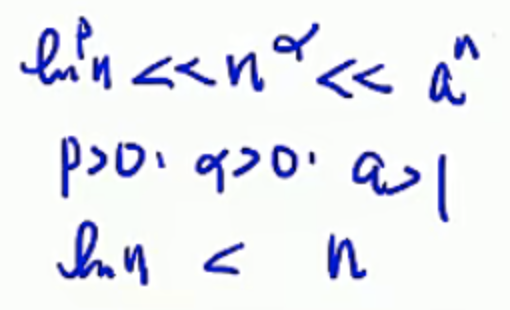 lnᵖn << n^α << aⁿ
p>0. α>0. a>1
ln n < n